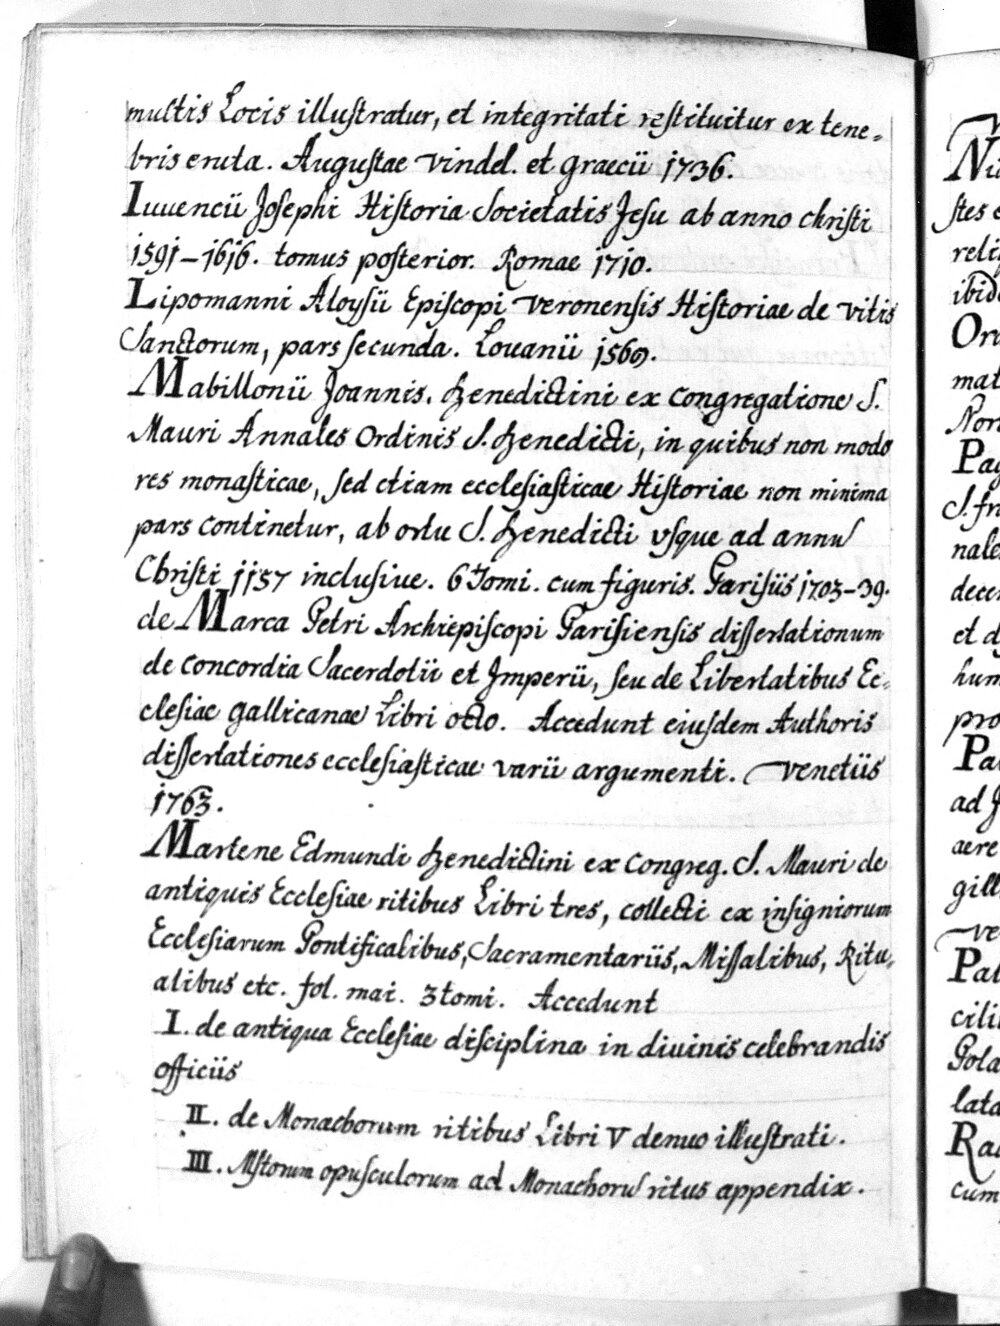 multis Locis illustratur, et integritati restituitur ex tene=
bris eruta. Augustae Vindel. et Graecii 1736.
Iuuencii Josephi Historia Societatis Jesu ab anno Christi
1591–1616. tomus posterior. Romae 1710.
Lipomanni Aloysii Episcopi Veronensis Historiae de vitis
Sanctorum, pars secunda. Louanii 1569.
Mabillonii Joannis. Benedictini ex Congregatione S.
Mauri Annales Ordinis S. Benedicti, in quibus non modo
res monasticae, sed etiam ecclesiasticae Historiae non minima
pars continetur, ab ortu S. Benedicti vsque ad annū
Christi 1157 inclusiue. 6 Tomi. cum figuris. Parisiis 1703–39.
de Marca Petri Archiepiscopi Parisiensis dissertationum
de concordia Sacerdotii et Imperii, seu de Libertatibus Ec=
clesiae gallicanae Libri octo. Accedunt eiusdem Authoris
dissertationes ecclesiasticae varii argumenti. Venetiis
1763.
Martene Edmundi Benedictini ex Congreg. S. Mauri de
antiquis Ecclesiae ritibus Libri tres, collecti ex insigniorum
Ecclesiarum Pontificalibus, Sacramentariis, Missalibus, Ritu=
alibus etc. fol. mai. 3 tomi. Accedunt
I. de antiqua Ecclesiae disciplina in diuinis celebrandis
officiis
II. de Monachorum ritibus Libri V denuo illustrati.
III. Mstorum opusculorum ad Monachorū ritus appendix.
Ni
stes
reli
ibid
Or
mat
Nor
Pag
S. fr
nale
dece
et d
hum
pro
Pa
ad J
aere
gill
Ve
Pal
cili
Pola
lata
Ra
cum